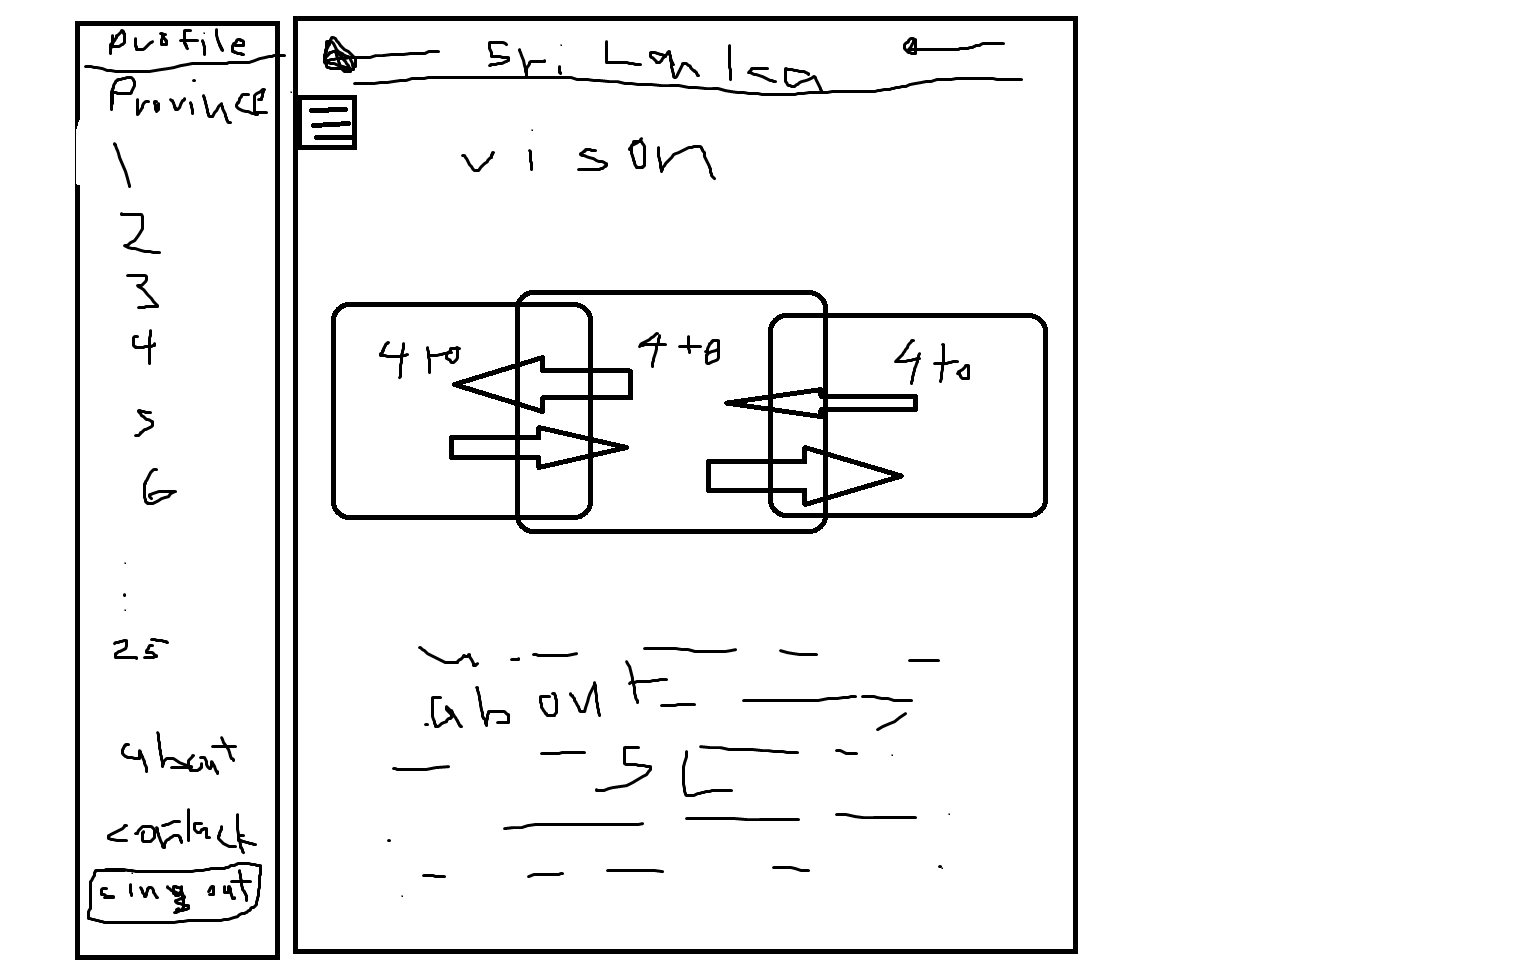 profile
Province
1
2
3
4
5
6
.
.
.
25
about
contact
sing out
Sri Lanka
vison
4 to
4 to
4 to
about
SL